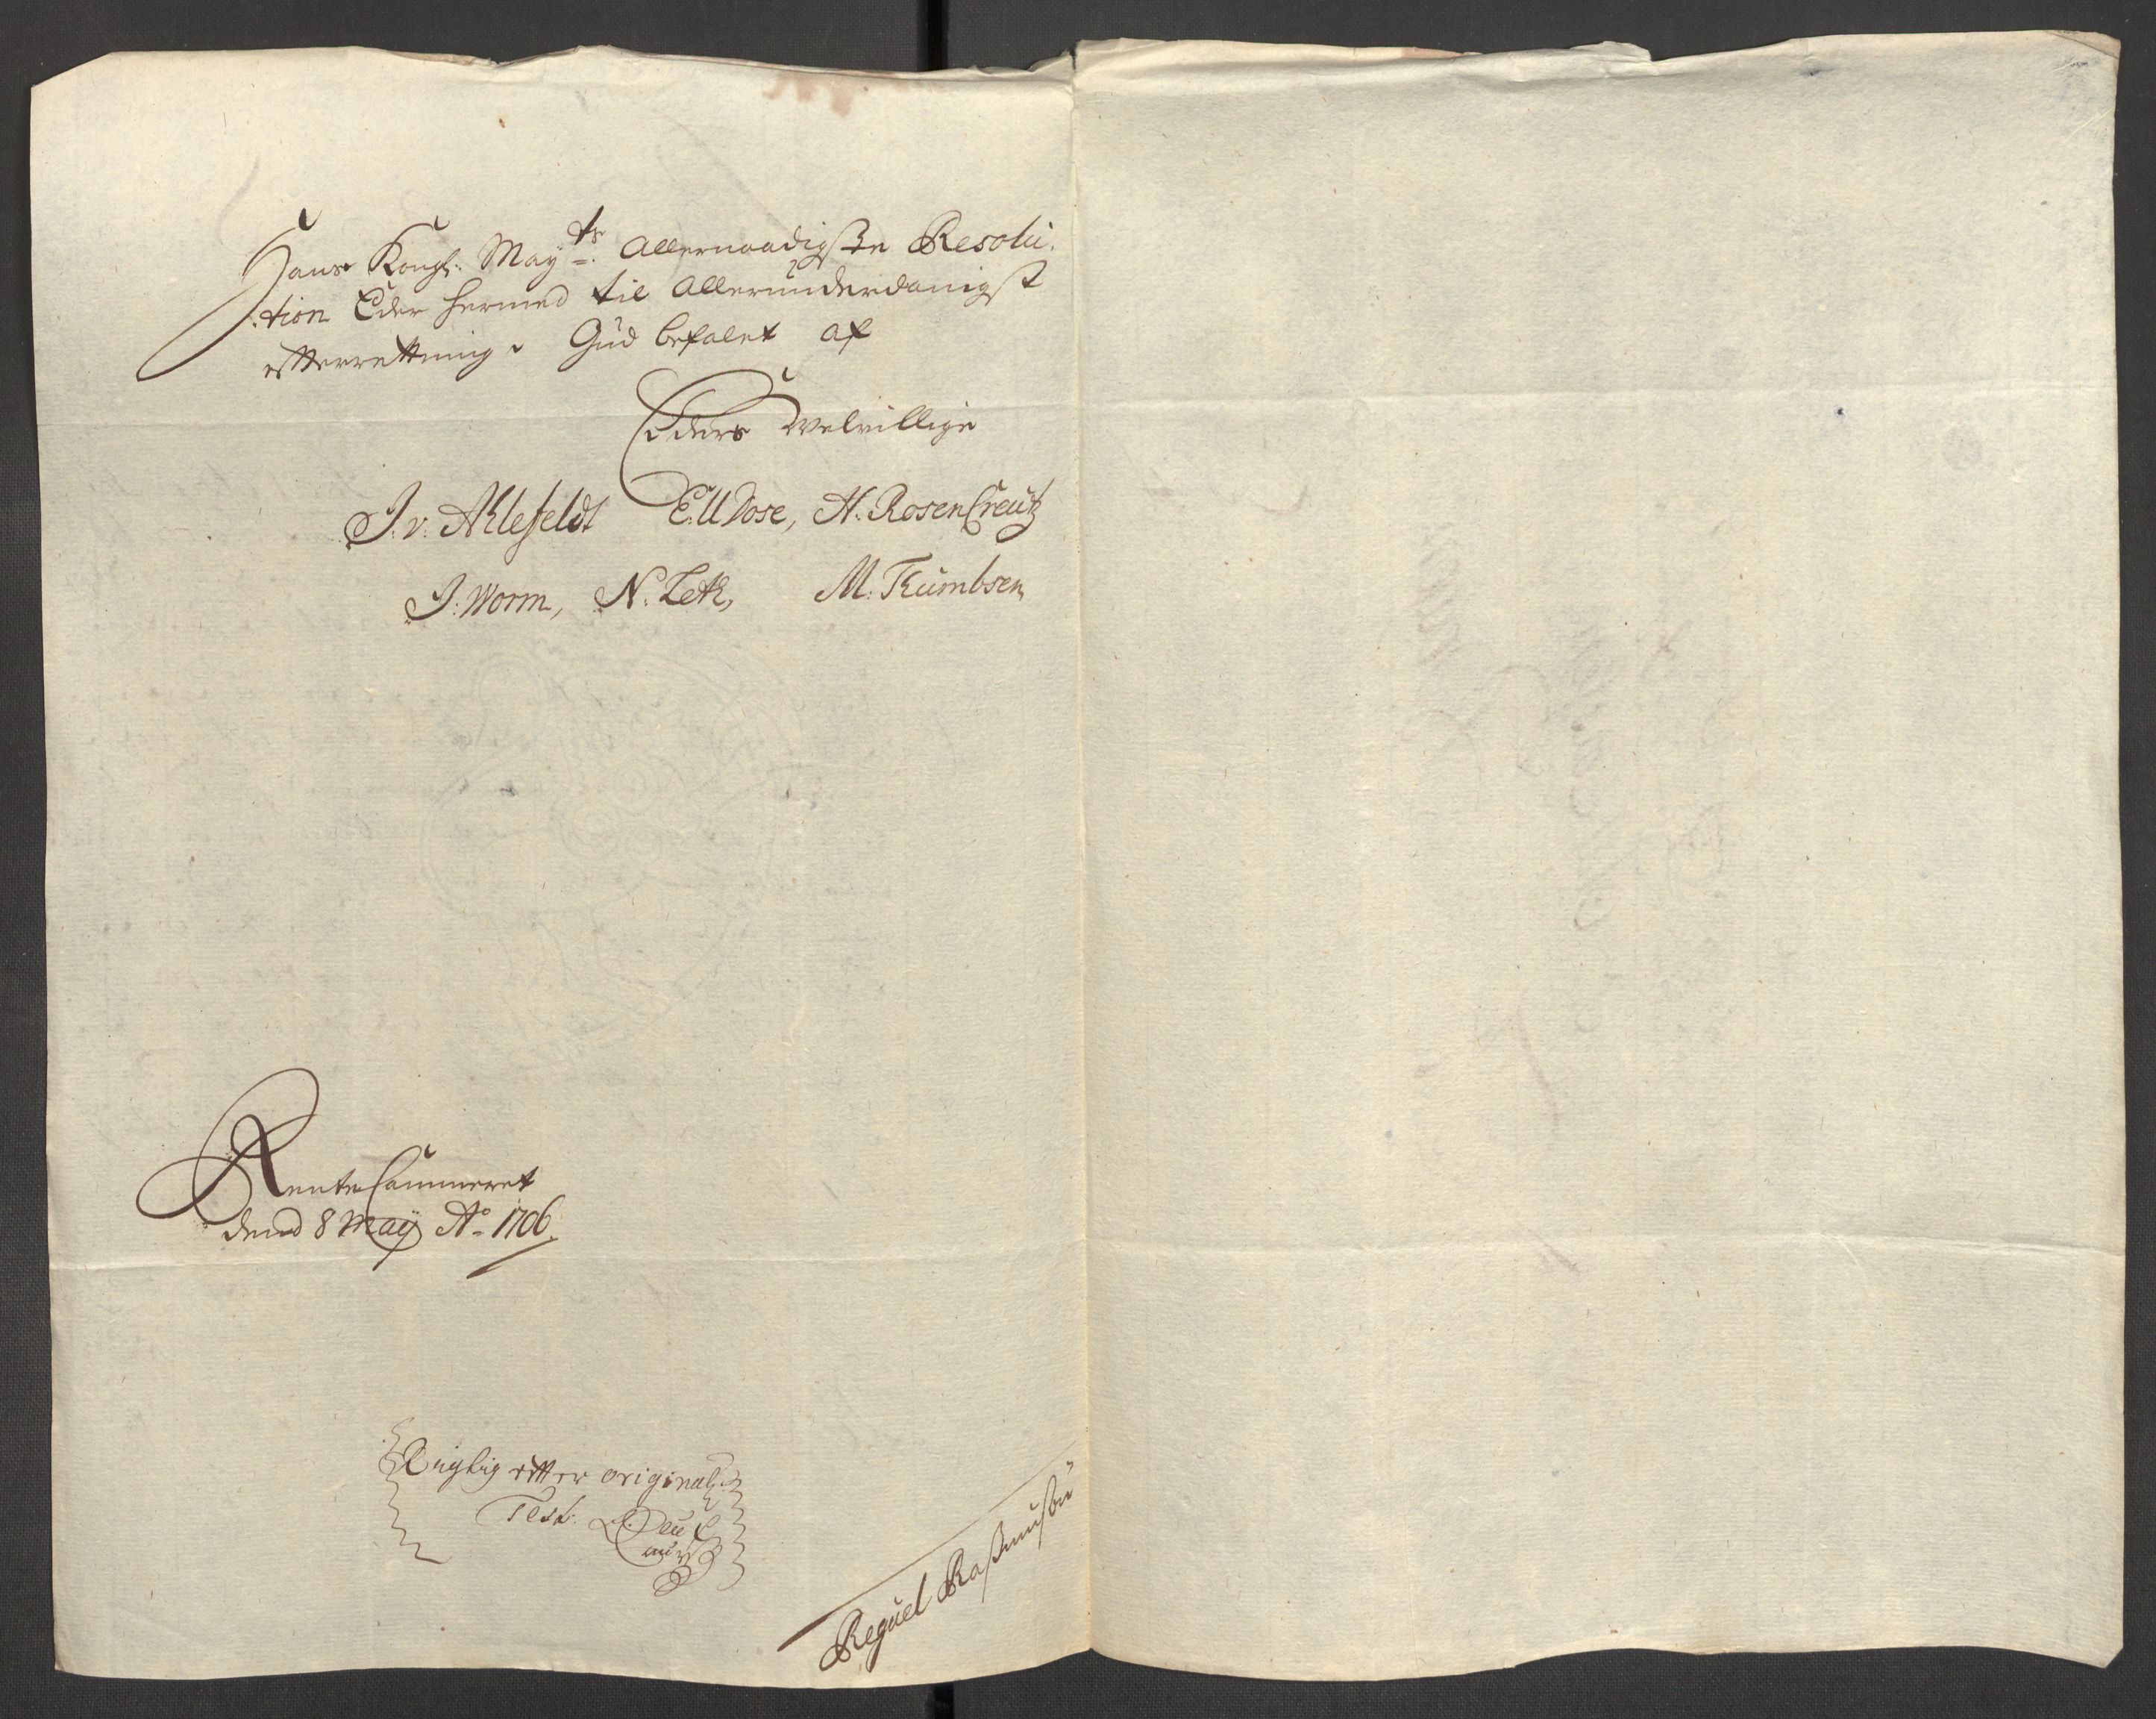 Hans Kongl: May:ts Allernaadigste Resolu:
:tion Eder hermed til Allerunderdanigst
efterretning. Gud befalet af
Eders velvillige
J. v. Ahlefeldt E. U. Dose, H. RosenCreutz
J: Worm, N. Letk, M. Thumbsen
RenteCammeret
dend 8 Maÿ A:o 1706.
Rigtig efter original:
Test:
Reguel Rasmusøn